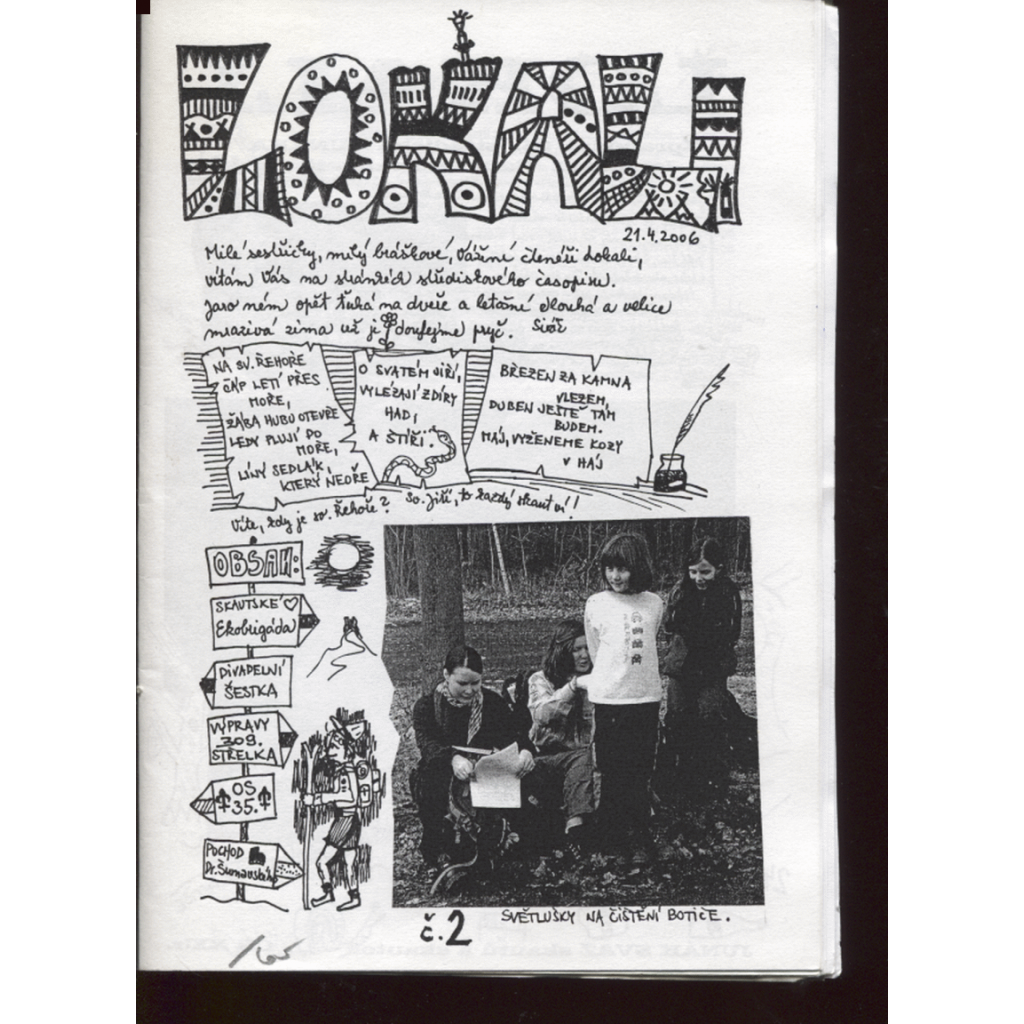 ZOKALI
21.4.2006
Milé sestřičky, milý bráškové, Vážení čtenáři Zokali,
vítám Vás na stránkách střediskového časopisu.
Jaro nám opět ťuká na dveře a letošní dlouhá a velice
mrazivá zima už je doufejme pryč.
NA SV. ŘEHOŘE
ČÁP LETÍ PŘES
MOŘE,
ŽÁBA HUBU OTEVŘE
LEDY PLUJÍ DO
MOŘE,
LÍNÝ SEDLÁK,
KTERÝ NEOŘE
O SVATÉM JIŘÍ,
VYLÉZAJÍ Z DÍRY
HAD,
A ŠTÍŘI.
BŘEZEN ZA KAMNA
VLEZEM,
DUBEN JEŠTĚ TAM
BUDEM.
MÁJ, VYŽENEME KOZY
V HÁJ
Víte, kdy je sv. Řehoře? Sv. Jiří, to každý skaut ví!
OBSAH:
SKAUTSKÉ
Ekobrigáda
DIVADELNÍ
ŠESTKA
VÝPRAVY
309.
STŘELKA
OS
35.
POCHOD
SVĚTLUŠKY NA ČIŠTĚNÍ BOTIČE.
č.2